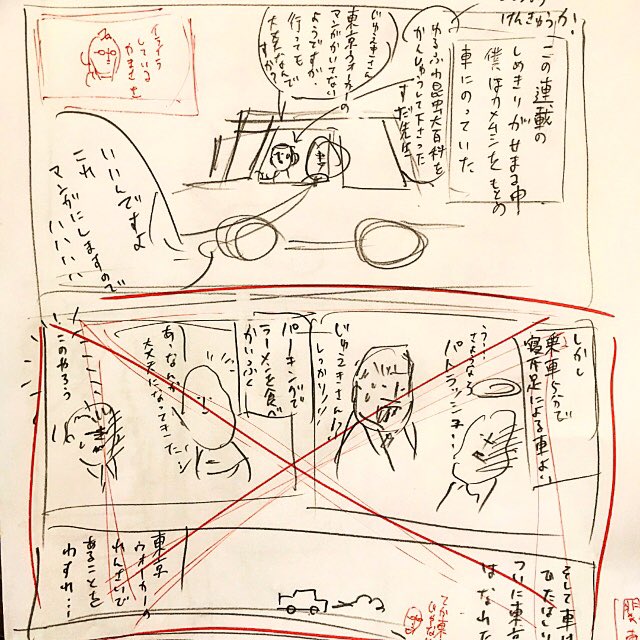 けんきゅうか。
この連載の
しめきりがせまる中
僕はカメムシをもとめ
車にのっていた
ゆるふわ昆虫大百科を
かんしゅうして下さった
すだ先生
じゅえきさん
東京ウォーカーの
マンガかいてない
ようですが、
行っても
大丈夫なんで
すか?
イライラ
している
やまさきを
いいんですよ
これ
マンガにしますので
いいいい
しかし
乗車5分で
寝不足による車よい
う…
さよなら
パトラッシュ…
じゅえきさん!?
しっかり!!
パーキングで
ラーメンを食べ
かいふく
あっなんか
大丈夫になってきた…
このやろう
そして車は
ひたはしり
ついに東京
はなれた
東京
ウォーカーの
れんさいで
あることを
わすれ…